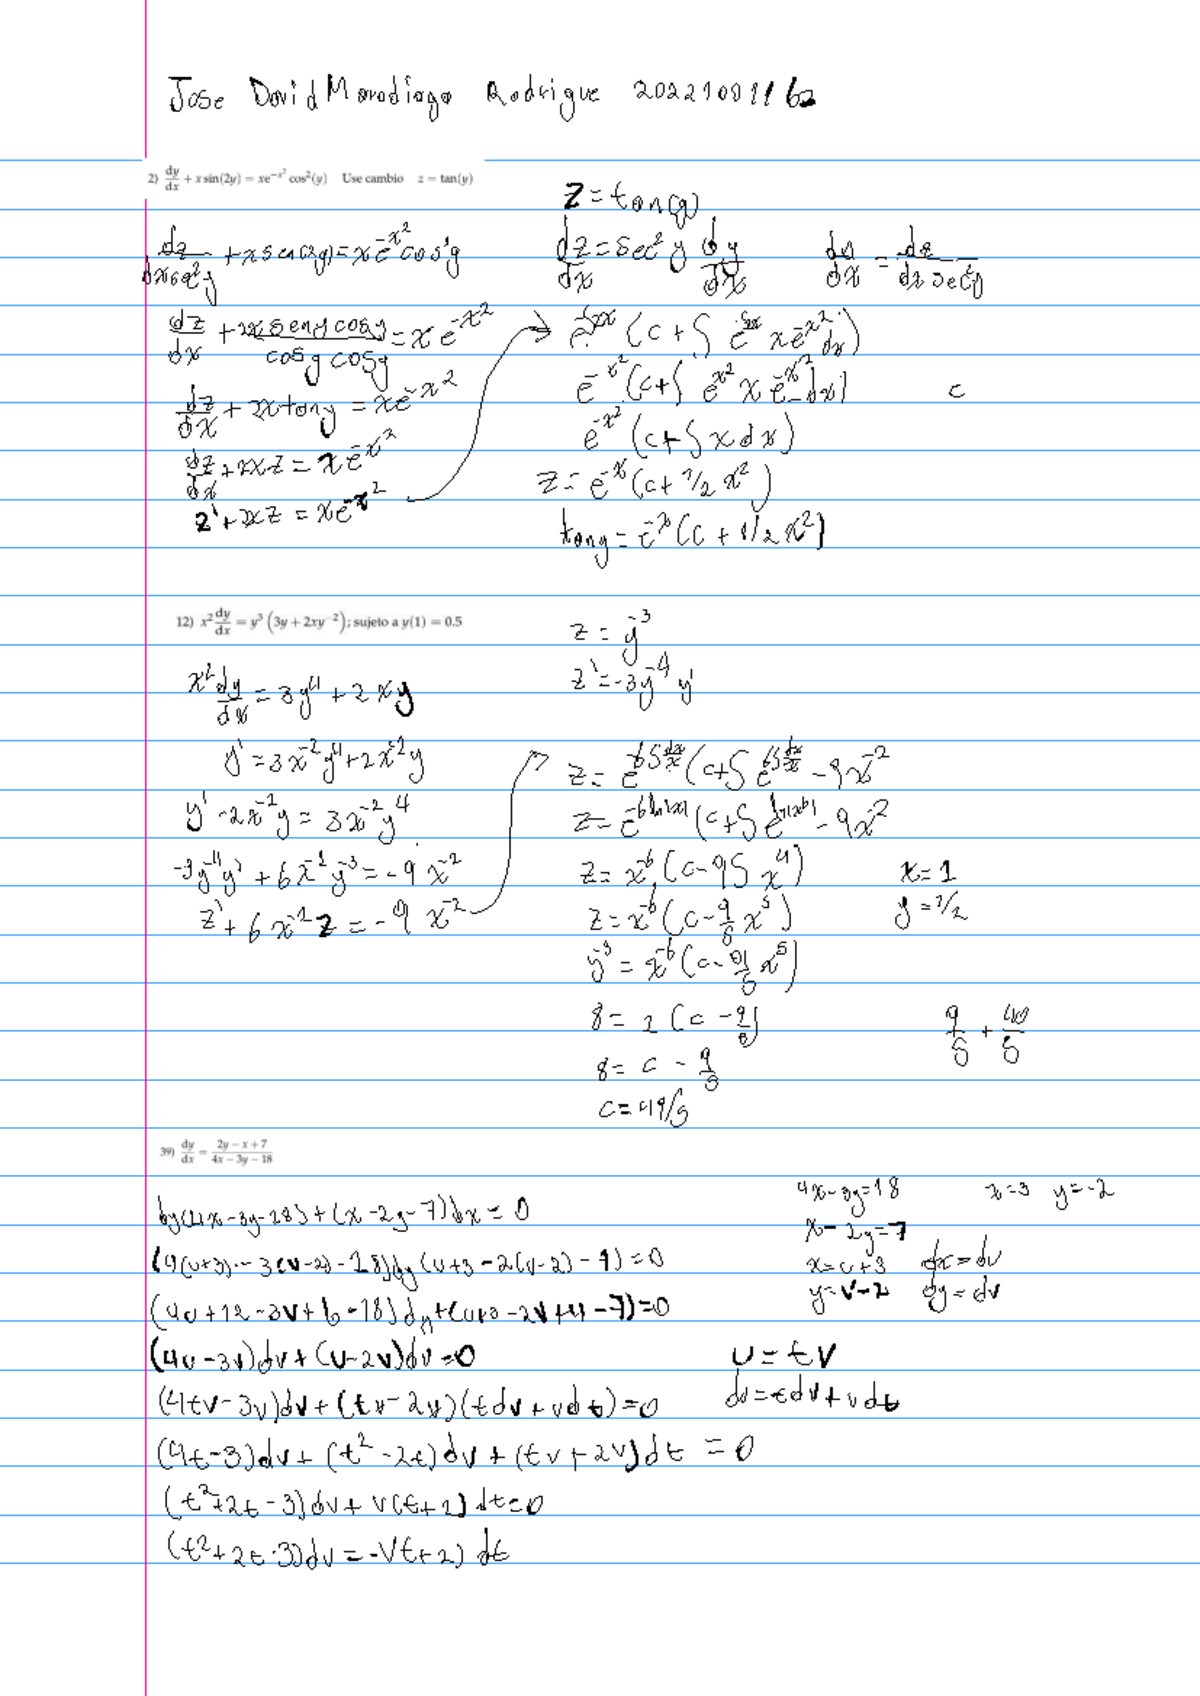 Jose David Maradiaga Rodrigue 20221001162
2) dy/dx + x sin(2y) = xe^{-x²} cos²(y) Use cambio z = tan(y)
z = tan(y)
dz/dx sec²y + x sen(2y) = x e^{-x²} cos²y
dz/dx = sec² y dy/dx
dy/dx = dz/dx sec²y
dz/dx + 2x sen y cos y / cos y cos y = x e^{-x²}
dz/dx + 2x tan y = x e^{-x²}
dz/dx + 2xz = x e^{-x²}
z' + 2xz = x e^{-x²}
e^{-x²} (c + ∫ e^{x²} x e^{-x²} dx)
c
e^{-x²} (c + ∫ x dx)
z = e^{-x} (c + 1/2 x²)
tan y = e^{-x} (c + 1/2 x²)
12) x² dy/dx = y³ (3y + 2xy^{-2}); sujeto a y(1) = 0.5
z = y^{-3}
z' = -3y^{-4} y'
x² dy/dx = 3y⁴ + 2xy
y' = 3x^{-2} y⁴ + 2x^{-2} y
y' - 2x^{-1} y = 3x^{-2} y⁴
-3y^{-4} y' + 6x^{-1} y^{-3} = -9 x^{-2}
z' + 6x^{-1} z = -9 x^{-2}
z = e^{-6∫dx/x} (c + ∫ e^{6∫dx/x} - 9x^{-2}
z = e^{-6 ln|x|} (c + ∫ e^{ln|x⁶|} - 9x^{-2}
z = x^{-6} (c - 9∫ x⁴)
z = x^{-6} (c - 9/5 x⁵)
y^{-3} = x^{-6} (c - 9/5 x⁵)
x = 1
y = 1/2
8 = 1 (c - 9/5)
8 = c - 9/5
c = 49/5
9/5 + 40/5
39) dy/dx = 2y − x + 7 / 4x − 3y − 18
dy(4x - 3y - 18) + (x - 2y - 7)dx = 0
(4(u+3) - 3(v-2) - 18)dy (u+3 - 2(v-2) - 7) = 0
(4u + 12 - 3v + 6 - 18) dy + (u+3 - 2v + 4 - 7) = 0
(4u - 3v)dv + (u - 2v)du = 0
(4tv - 3v)dv + (tv - 2v)(t dv + v dt) = 0
(4t - 3)dv + (t² - 2t)dv + (tv + 2v)dt = 0
(t² + 2t - 3)dv + v(t + 2) dt = 0
(t² + 2t - 3)dv = -v t + 2) dt
4x - 3y = 18
x = 3 y = -2
x - 2y = 7
x = u + 3 dx = du
y = v - 2 dy = dv
u = tv
du = t dv + v dt